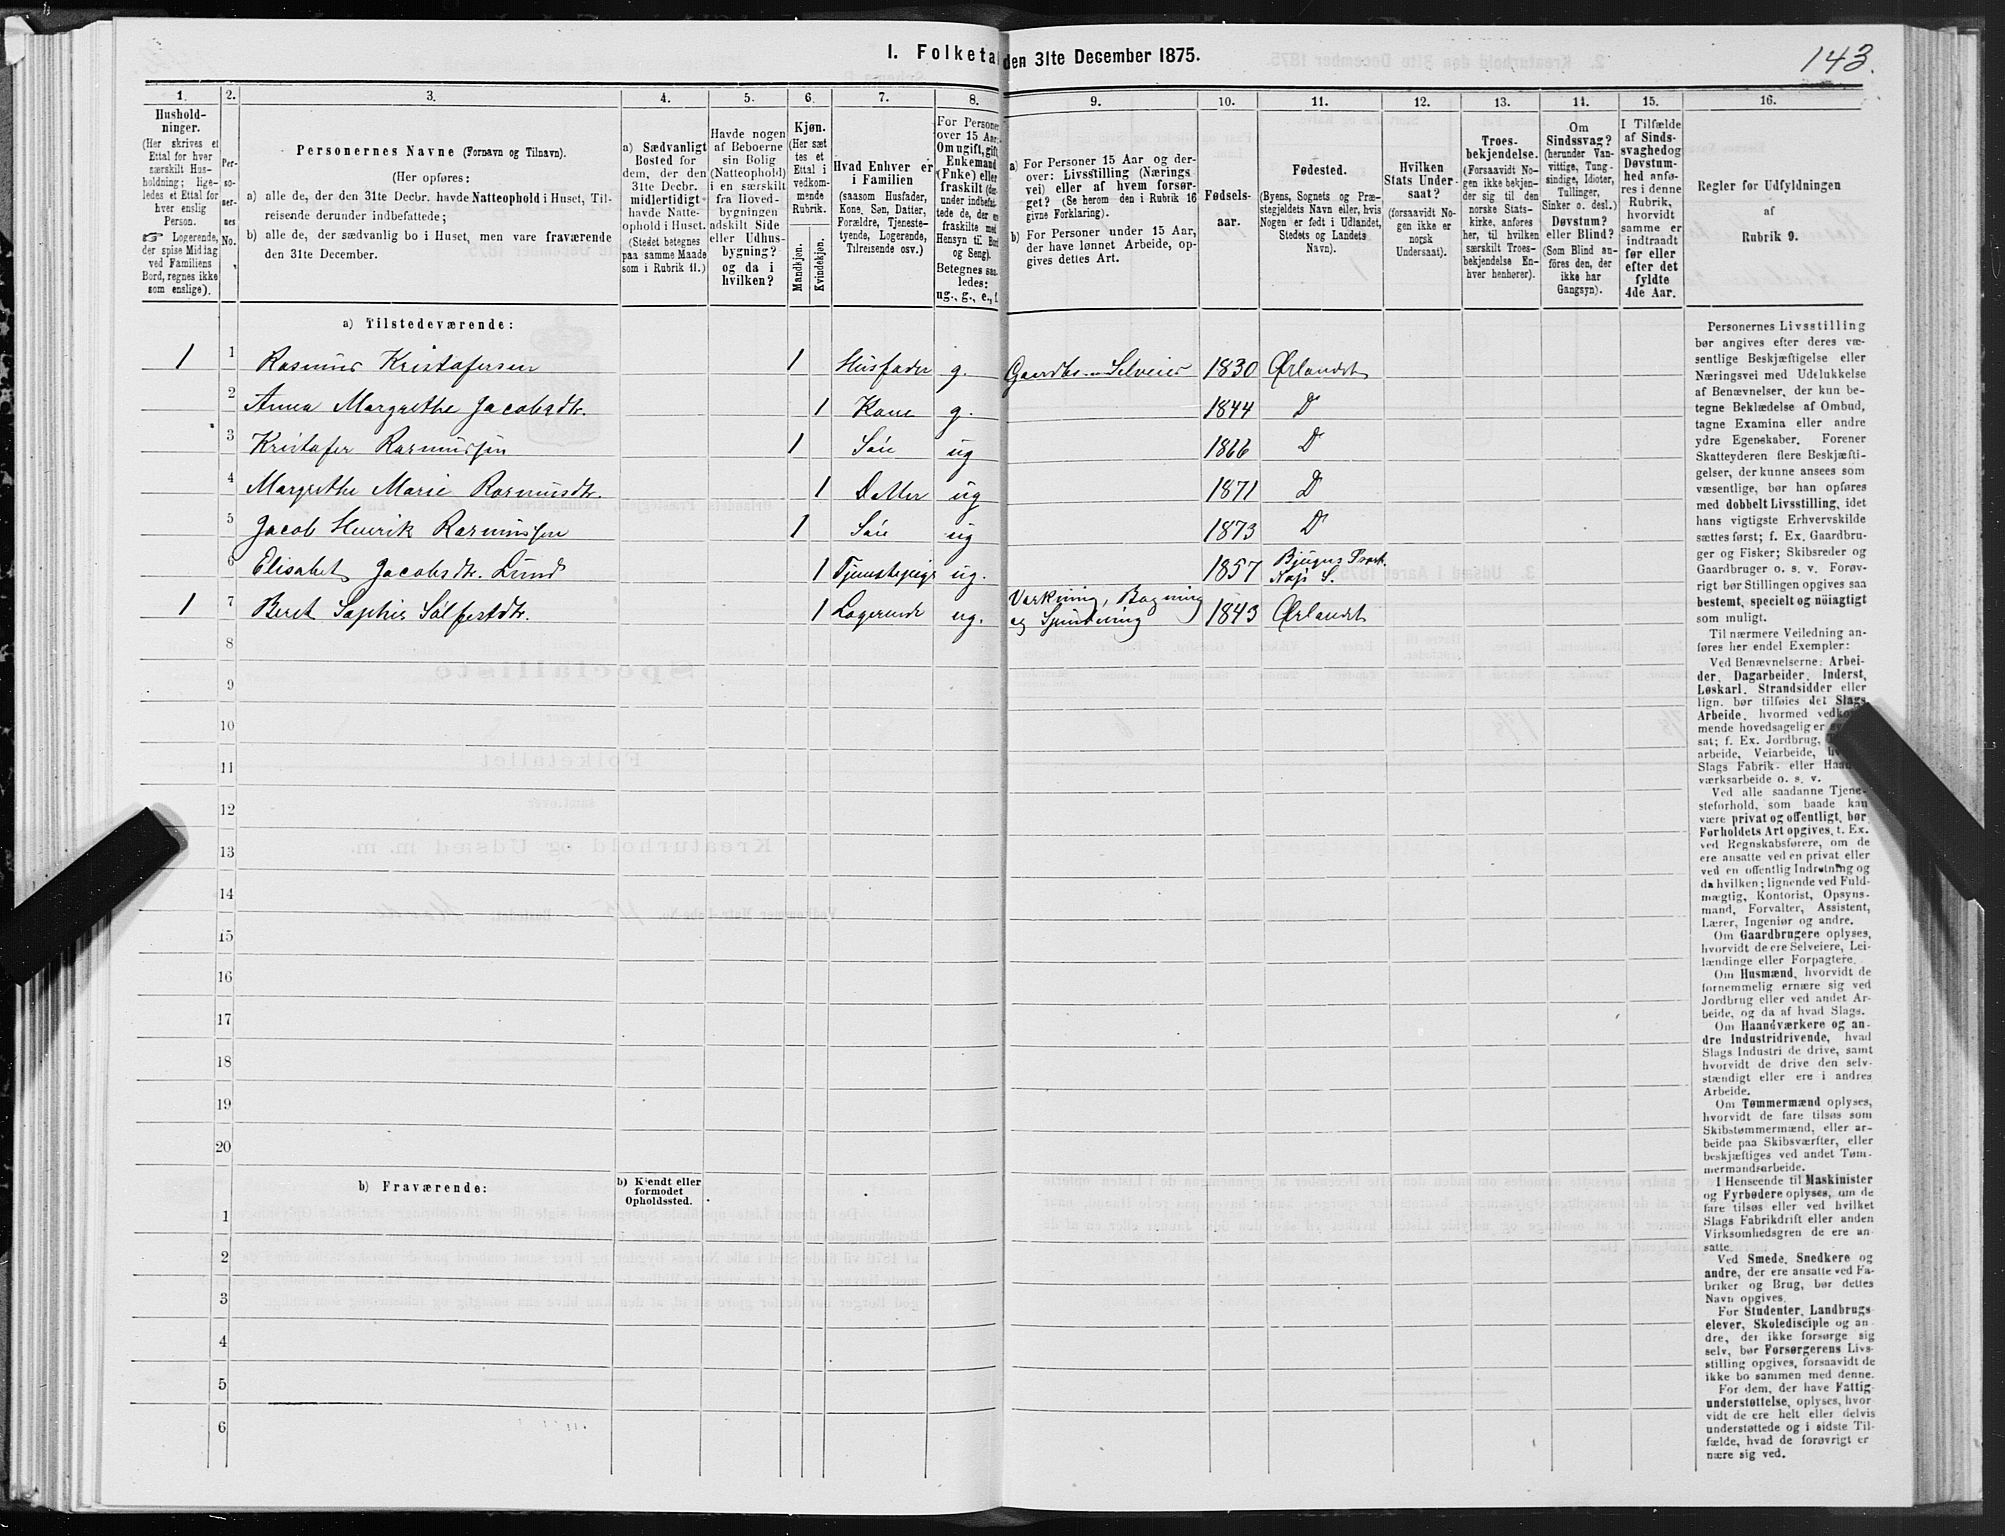 143.
I. Folketal den 31te December 1875.
1. 2. 3. 4. 5. 6. 7. 8. 9. 10. 11. 12. 13. 14. 15. 16.
Hushold-
ninger.
(Her skrives et
Ettal for hver
særskilt Hus-
holdning; lige-
ledes et Ettal for
hver enslig
Person.
☞ Logerende,
der spise Middag
ved Familiens
Bord, regnes ikke
som enslige).
Per-
so-
ner-
nes
No.
Personernes Navne (Fornavn og Tilnavn).
(Her opføres:
a) alle de, der den 31te Decbr. havde Natteophold i Huset, Til-
reisende derunder indbefattede;
b) alle de, der sædvanlig bo i Huset, men vare fraværende
den 31te December.
a) Sædvanligt
Bosted for
dem, der den
31te Decbr.
midlertidigt
havde Natte-
ophold i Huset.
(Stedet betegnes
paa samme Maade
som i Rubrik 11.)
Havde nogen
af Beboerne
sin Bolig
(Natteophold)
i en særskilt
fra Hoved-
bygningen
adskilt Side
eller Udhus-
bygning?
og da i
hvilken?
Kjøn.
(Her sæt
tes et
Ettal i
vedkom-
mende
Rubrik.
Mandkjøn.
Kvindekjøn.
Hvad Enhver er
i Familien
(saasom Husfader,
Kone, Søn, Datter,
Forældre, Tjeneste-
tyende, Logerende,
Tilreisende osv.)
For Personer
over 15 Aar:
Om ugift, gift
Enkemand
(Enke) eller
fraskilt (der-
under indbefat-
tede de, der ere
fraskilte med
Hensyn til Bord
og Seng).
Betegnes saa-
ledes:
ug., g., e., f.
a) For Personer 15 Aar og der-
over: Livsstilling (Nærings
vei) eller af hvem forsør-
get? (Se herom den i Rubrik 16
givne Forklaring).
b) For Personer under 15 Aar,
der have lønnet Arbeide, op-
gives dettes Art.
Fødsels-
aar.
Fødested.
(Byens, Sognets og Præ-
stegjeldets Navn eller, hvis
Nogen er født i Udlandet,
Stedets og Landets
Navn).
Hvilken
Stats Under-
saat?
(forsaavidt No-
gen ikke er
norsk
Undersaat).
Troes-
bekjendelse.
(Forsaavidt No-
gen ikke bekjen-
der sig til den
norske Stats-
kirke, anføres
her, til hvilken
særskilt Troes-
bekjendelse En-
hver henhører).
Om
Sindssvag?
(herunder Van-
vittige, Tung-
sindige, Idioter,
Tullinger,
Sinker o. desl.)
Døvstum?
eller Blind?
(Som Blind an-
føres den, der
ikke har
Gangsyn).
I Tilfælde
af Sinds-
svaghedog
Døvstum-
hed anfø-
res i denne
Rubrik,
hvorvidt
samme er
indtraadt
før eller
efter det
fyldte
4de Aar.
Regler for Udfyldningen
af
Rubrik 9.
a) Tilstedeværende:
1 1 Rasmus Kristofersen 1 Husfader g. Gaardbr. Selveier 1830 Ørlandet
2 Anna Margrethe Jacobsdtr. 1 Kone g. 1844 D
3 Kristofer Rasmussen 1 Søn ug 1866 D
4 Margrethe Marie Rasmusdtr. 1 Datter ug 1871 D
5 Jacob Henrik Rasmussen 1 Søn ug 1873 D
6 Elisabet Jacobsdtr. Lund 1 Tjenestepige ug. 1857 Bjugns
S.
1 7 Beret Sophie 1 Logerende ug. Bagning 1843 Ørlandet
og Spinding
8
9
10
11
12
13
14
15
16
17
18
19
20
b) Fraværende:
b) Kjendt eller
formodet
Opholdssted.
1
2
3
4
5
6
Personernes Livsstilling
bør angives efter deres væ-
sentlige Beskjæftigelse eller
Næringsvei med Udelukkelse
af Benævnelser, der kun be-
tegne Beklædelse af Ombud,
tagne Examina eller andre
ydre Egenskaber. Forener
Skatteyderen flere Beskjæfti-
gelser, der kunne ansees som
væsentlige, bør han opføres
med dobbelt Livsstilling, idet
hans vigtigste Erhvervskilde
sættes først; f. Ex. Gaardbru-
ger og Fisker; Skibsreder og
Gaardbruger o. s. v. Forøv-
rigt bør Stillingen opgives saa
bestemt, specielt og nöiagtigt
som muligt.
Til nærmere Veiledning an-
føres her endel Exempler:
Ved Benævnelserne: Arbei-
der, Dagarbeider, Inderst,
Løskarl, Strandsidder eller
lign. bør tilføies det Slags
Arbeide, hvormed vedkom-
mende hovedsagelig er
sat; f. Ex. Jordbrug,
arbeide, Veiarbeide,
Slags Fabrik- eller
værksarbeide o. s. v.
Ved alle saadanne Tjene-
steforhold, som baade kan
være privat og offentligt, bør
Forholdets Art opgives, t. Ex.
ved Regnskabsførere, om de
ere ansatte ved en privat eller
ved en offentlig Indretning og
da hvilken; lignende ved Fuld-
mægtig, Kontorist, Opsyns-
mand, Forvalter, Assistent,
Lærer, Ingeniør og andre.
Om Gaardbrugere oplyses,
hvorvidt de ere Selveiere, Lei-
lændinge eller Forpagtere.
Om Husmænd, hvorvidt de
fornemmelig ernære sig ved
Jordbrug eller ved andet Ar-
beide, og da af hvad Slags.
Om Haandværkere og an-
dre Industridrivende, hvad
Slags Industri de drive, samt
hvorvidt de drive den selv-
stændigt eller ere i andres
Arbeide.
Om Tømmermænd oplyses,
hvorvidt de fare tilsøs som
Skibstømmermænd, eller ar-
beide paa Skibsværfter, eller
beskjæftiges ved andet Tøm-
mermandsarbeide.
I Henseende til Maskinister
og Fyrbødere oplyses, om de
fare tilsøs eller ved hvilket
Slags Fabrikdrift eller anden
Virksomhedsgren de ere an-
satte.
Ved Smede, Snedkere og
andre, der ere ansatte ved Fa-
briker og Brug, bør dettes
Navn opgives.
For Studenter, Landbrugs-
elever, Skoledisciple og an
dre, der ikke forsørge sig
selv, bør Forsørgerens Livs-
stilling opgives, forsaavidt de
ikke bo sammen med denne.
For dem, der have Fattig-
understøttelse, oplyses, hvor-
vidt de ere helt eller delvis
understøttede og i sidste Til-
fælde, hvad de forøvrigt er
nære sig ved.